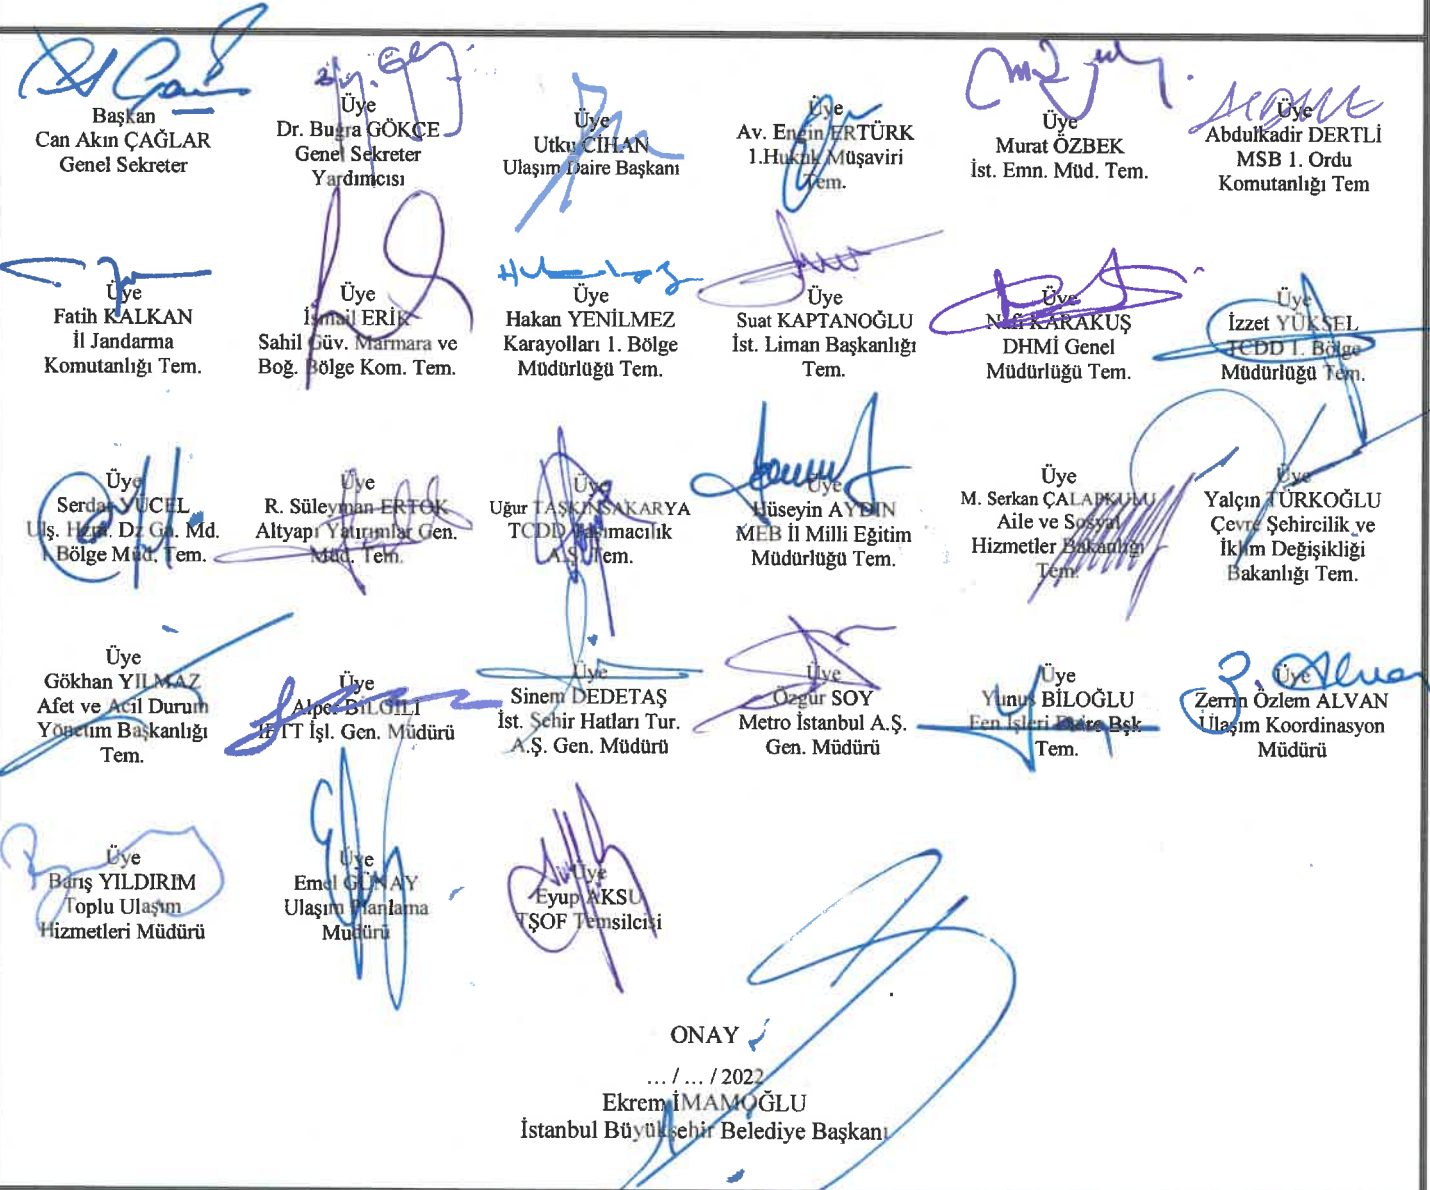 Başkan
Can Akın ÇAĞLAR
Genel Sekreter
Üye
Dr. Buğra GÖKÇE
Genel Sekreter
Yardımcısı
Üye
Utku CİHAN
Ulaşım Daire Başkanı
Üye
Av. Engin ERTÜRK
1.Hukuk Müşaviri
Tem.
Üye
Murat ÖZBEK
İst. Emn. Müd. Tem.
Üye
Abdulkadir DERTLİ
MSB 1. Ordu
Komutanlığı Tem
Üye
Fatih KALKAN
İl Jandarma
Komutanlığı Tem.
Üye
İsmail ERİK
Sahil Güv. Marmara ve
Boğ. Bölge Kom. Tem.
Üye
Hakan YENİLMEZ
Karayolları 1. Bölge
Müdürlüğü Tem.
Üye
Suat KAPTANOĞLU
İst. Liman Başkanlığı
Tem.
Üye
KARAKUŞ
DHMİ Genel
Müdürlüğü Tem.
Üye
İzzet YÜKSEL
TCDD 1. Bölge
Müdürlüğü Tem.
Üye
Serdar YÜCEL
Ulş. Hzm. Dz Ga. Md.
1.Bölge Müd. Tem.
Üye
R. Süleyman ERTOK
Altyapı Yatırımlar Gen.
Müd. Tem.
Üye
Uğur TAŞKINSAKARYA
TCDD Taşımacılık
A.Ş. Tem.
Üye
Hüseyin AYDIN
MEB İl Milli Eğitim
Müdürlüğü Tem.
Üye
M. Serkan ÇALAPKULU
Aile ve Sosyal
Hizmetler Bakanlığı
Tem.
Üye
Yalçın TÜRKOĞLU
Çevre Şehircilik ve
İklim Değişikliği
Bakanlığı Tem.
Üye
Gökhan YILMAZ
Afet ve Acil Durum
Yönetim Başkanlığı
Tem.
Üye
Alper BİLGİLİ
İETT İşl. Gen. Müdürü
Üye
Sinem DEDETAŞ
İst. Şehir Hatları Tur.
A.Ş. Gen. Müdürü
Üye
Özgür SOY
Metro İstanbul A.Ş.
Gen. Müdürü
Üye
Yunus BİLOĞLU
Fen İşleri Daire Bşk
Tem.
Üye
Zerrin Özlem ALVAN
Ulaşım Koordinasyon
Müdürü
Üye
Barış YILDIRIM
Toplu Ulaşım
Hizmetleri Müdürü
Üye
Emel GÜNAY
Ulaşım Planlama
Müdürü
Üye
Eyup AKSU
TŞOF Temsilcisi
ONAY
... / ... / 2022
Ekrem İMAMOĞLU
İstanbul Büyükşehir Belediye Başkanı